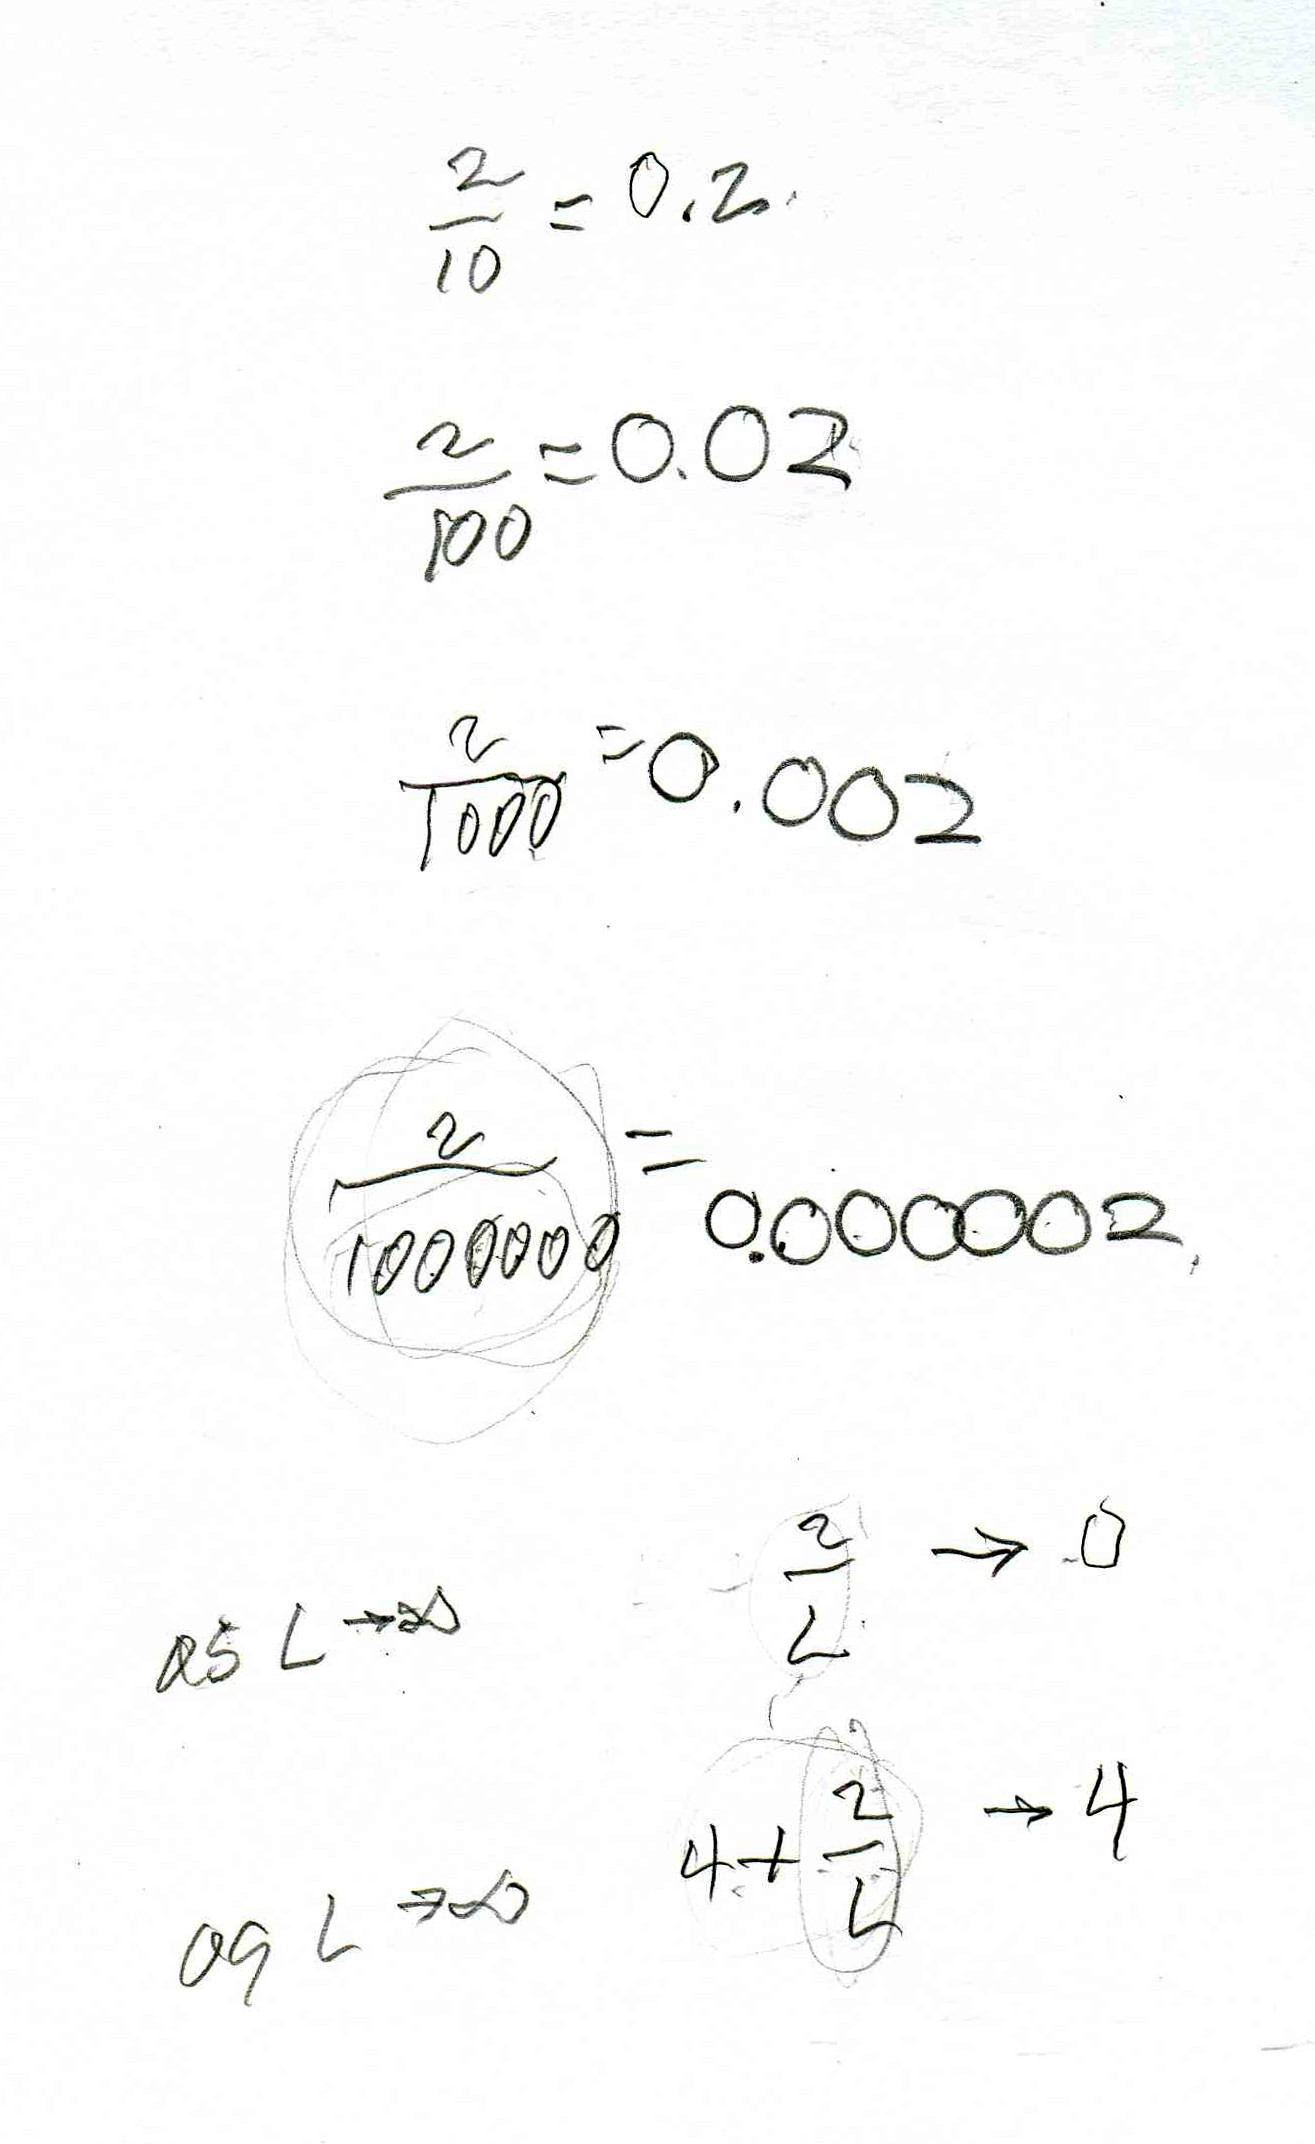 2/10 = 0.2
2/100 = 0.02
2/1000 = 0.002
2/1000000 = 0.000002
as L → ∞ 2/L → 0
as L → ∞ 4 + 2/L → 4